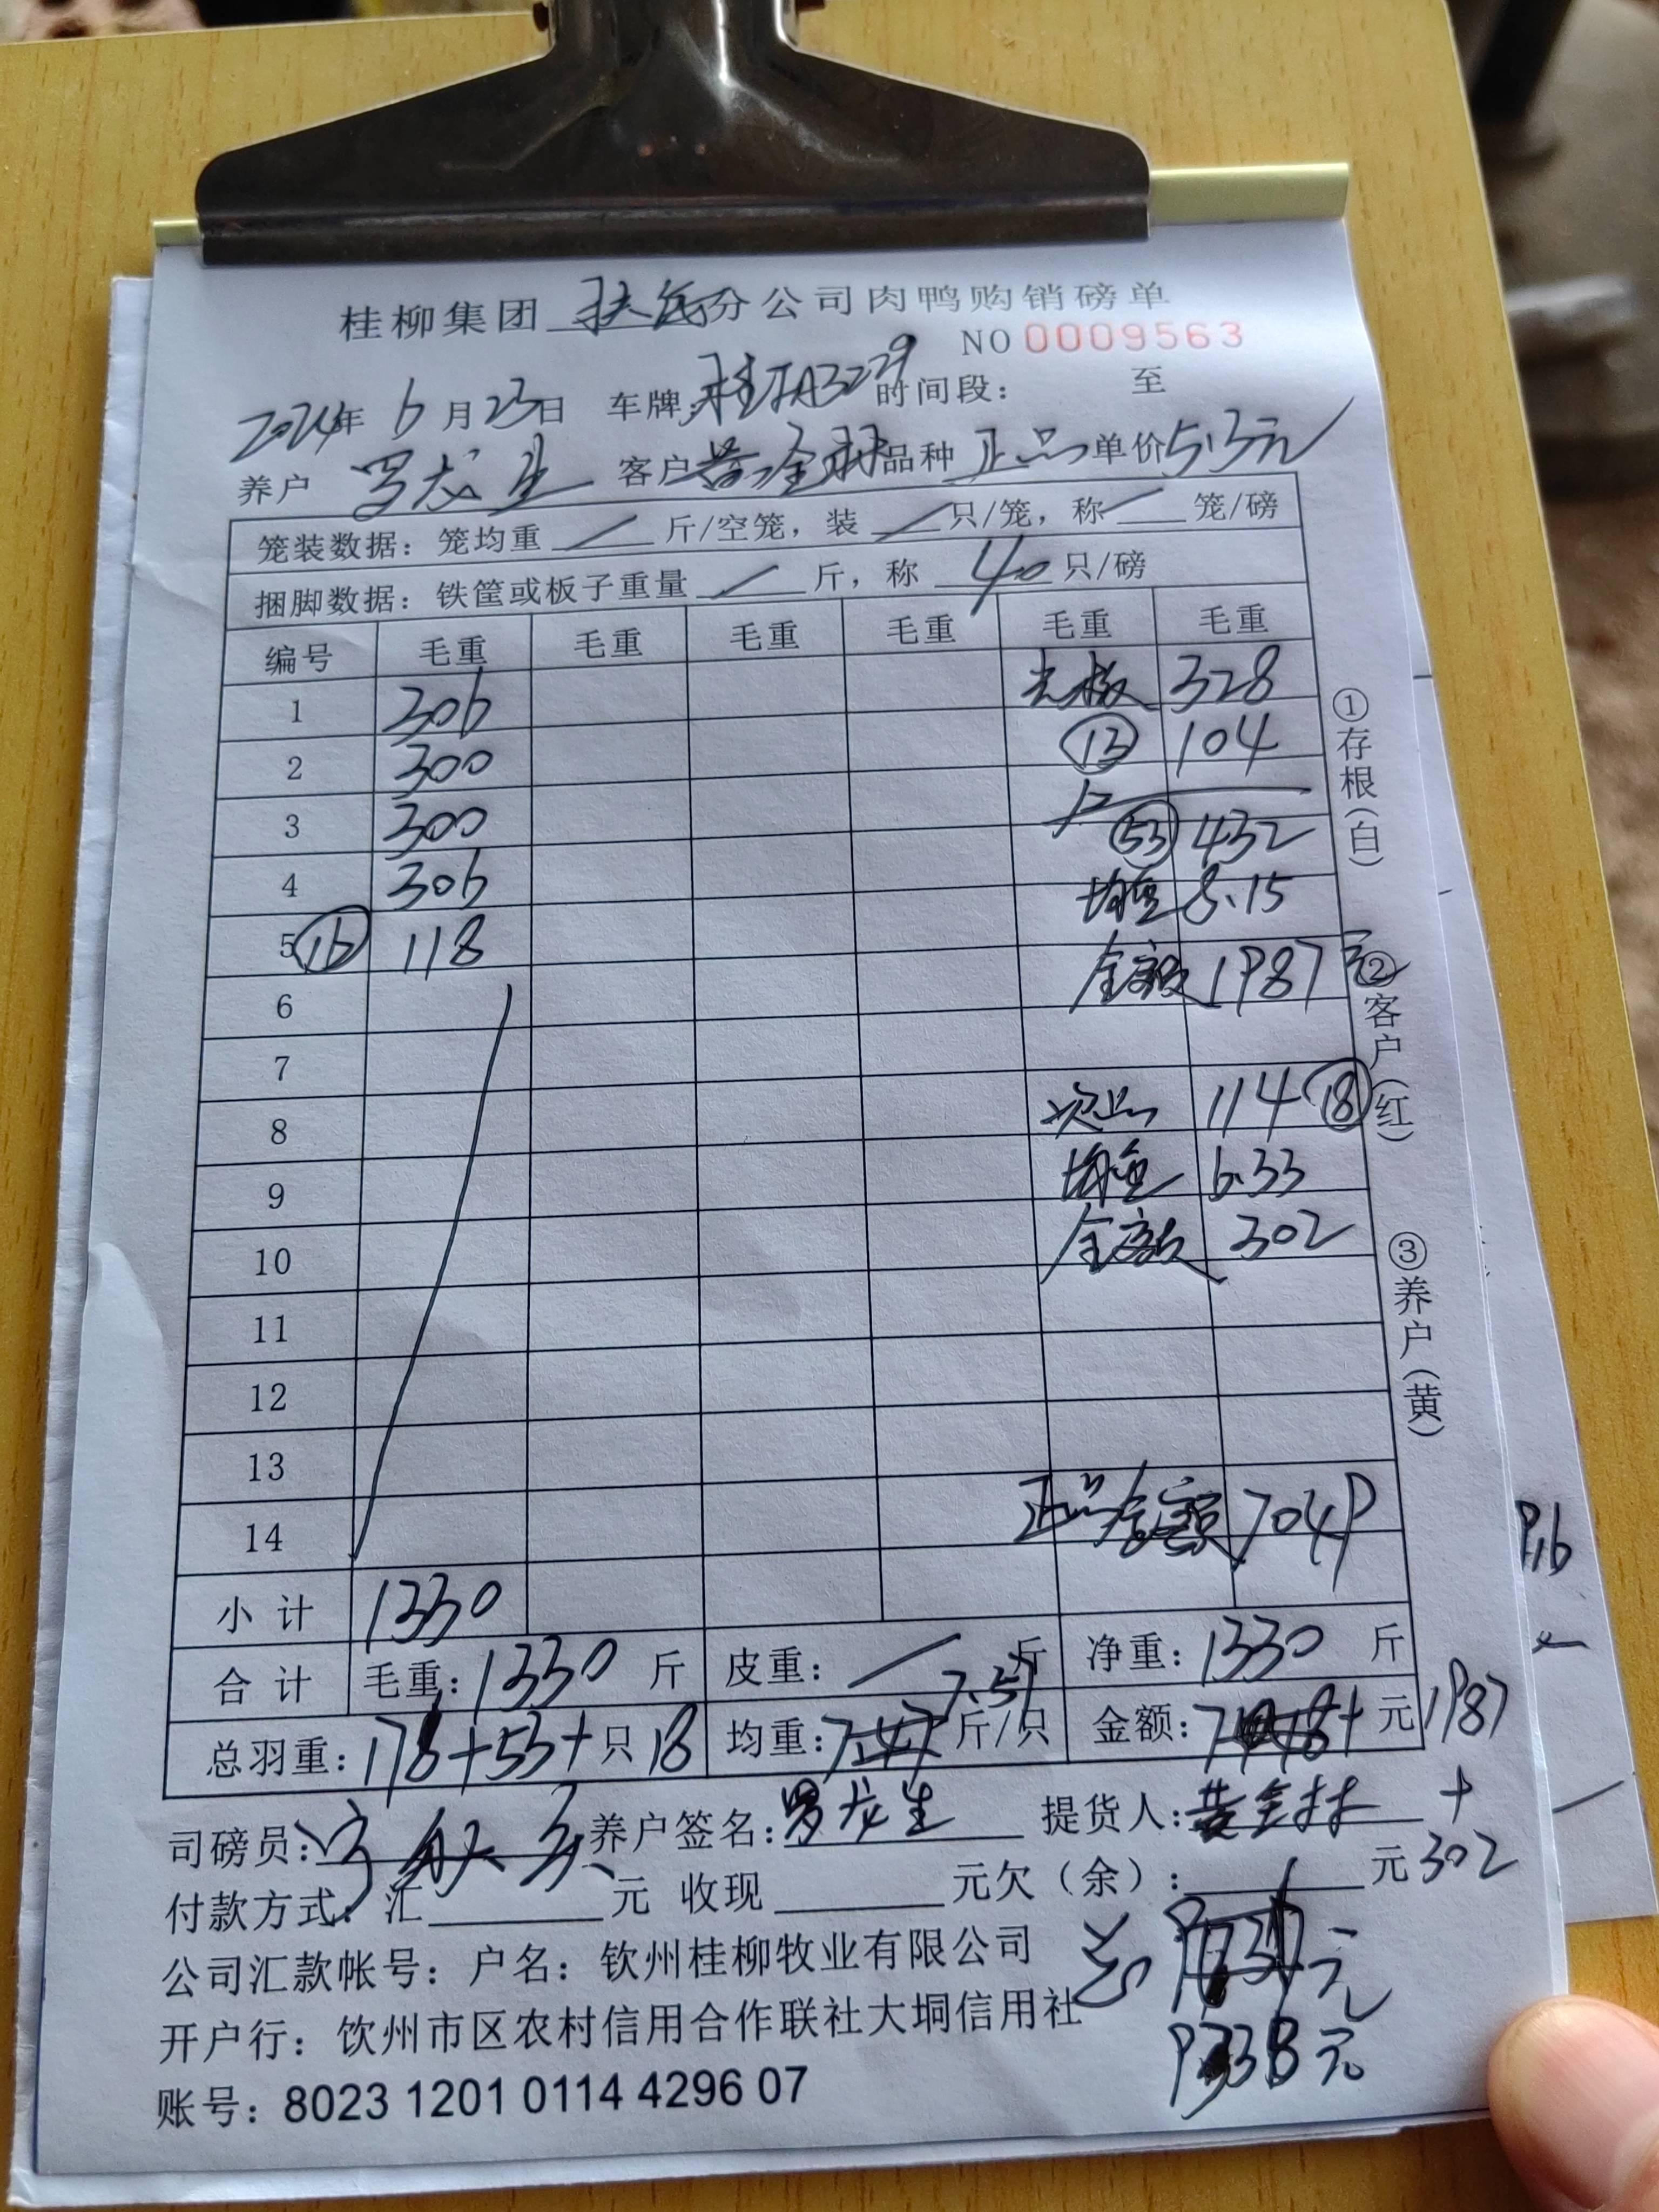 桂柳集团 分公司肉鸭购销磅单
NO 0009563
2024年 6 月 23日 车牌: 桂 A3229 时间段： 至
养户 罗龙生 客户 黄全林 品种 正品 单价 5.3元
笼装数据：笼均重 / 斤/空笼，装 / 只/笼，称 / 笼/磅
捆脚数据：铁筐或板子重量 / 斤，称 40 只/磅
编号 毛重 毛重 毛重 毛重 毛重 毛重
1 306 328
2 300 13 104
3 300 53 432
4 306 均重 8.15
5 16 118 金额 1987元
6
7
8 次品 114 18
9 均重 6.33
10 金额 302
11
12
13
14 正品金额 7049
小 计 1330
合 计 毛重: 1330 斤 皮重: / 斤 净重: 1330 斤
总羽重: 178+53+ 只 18 均重: 7.47 7.51 斤/只 金额: + 元 1987
司磅员: 养户签名: 罗龙生 提货人: 黄全林 +
付款方式: 汇 元 收现 元欠（余）: / 元 302
公司汇款帐号: 户名: 钦州桂柳牧业有限公司 总 元
开户行: 饮州市区农村信用合作联社大垌信用社
9338元
账号: 8023 1201 0114 4296 07
①存根(白)
②客户(红)
③养户(黄)